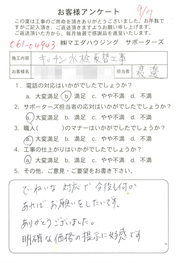 お客様アンケート
9/7
この度は工事のご用命をいただきありがとうございました。お手数ですがご記入頂き、ご返送頂きますようお願い申し上げます。
ご返送頂いた方から、毎月抽選で感謝品を進呈いたします。
061-04943 ㈱マエダハウジング サポーターズ
施工内容 キッチン水栓取替工事
お客様名 担当者 渡邉
1. 電話の対応はいかがでしたでしょうか？
a. 大変満足 b. 満足 c. やや不満 d. 不満
2. サポーターズ担当者の応対はいかがでしたでしょうか？
a. 大変満足 b. 満足 c. やや不満 d. 不満
3. 職人( )のマナーはいかがでしたでしょうか？
a. 大変満足 b. 満足 c. やや不満 d. 不満
4. 工事の仕上がりはいかがでしたでしょうか？
a. 大変満足 b. 満足 c. やや不満 d. 不満
5. その他、ご意見・ご要望をお書き下さい。
ていねいな対応で今後も何か
あればお願いをしたいです。
ありがとうございました。
明朗な価格の提示に好感です